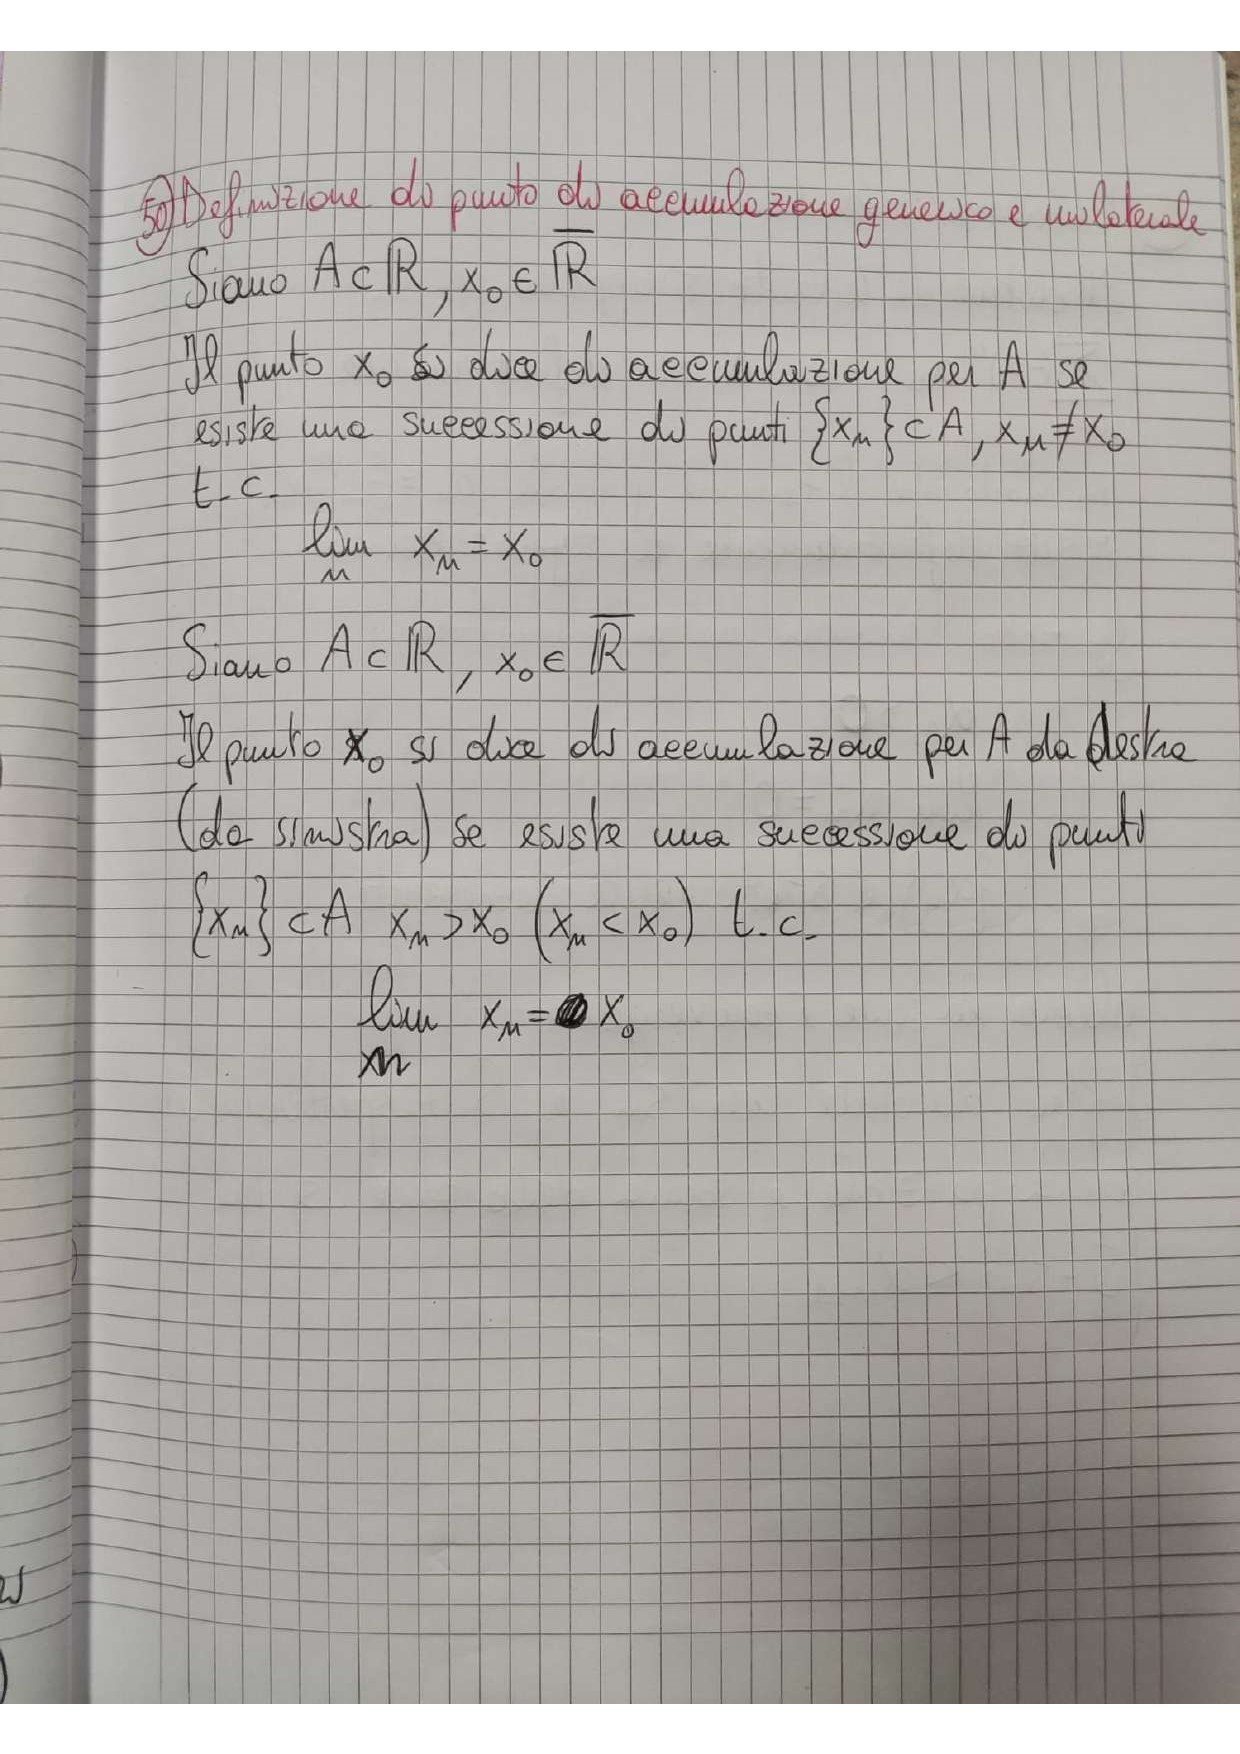 50) Definizione di punto di accumulazione generico e unilaterale
Siano A⊂ℝ, x₀∈ℝ̅
Il punto x₀ si dice di accumulazione per A se
esiste una successione di punti {xₙ}⊂A, xₙ≠x₀
t.c.
lim xₙ = x₀
n
Siano A⊂ℝ, x₀∈ℝ̅
Il punto x₀ si dice di accumulazione per A da destra
(da sinistra) se esiste una successione di punti
{xₙ}⊂A xₙ>x₀ (xₙ<x₀) t.c.
lim xₙ = x₀
n